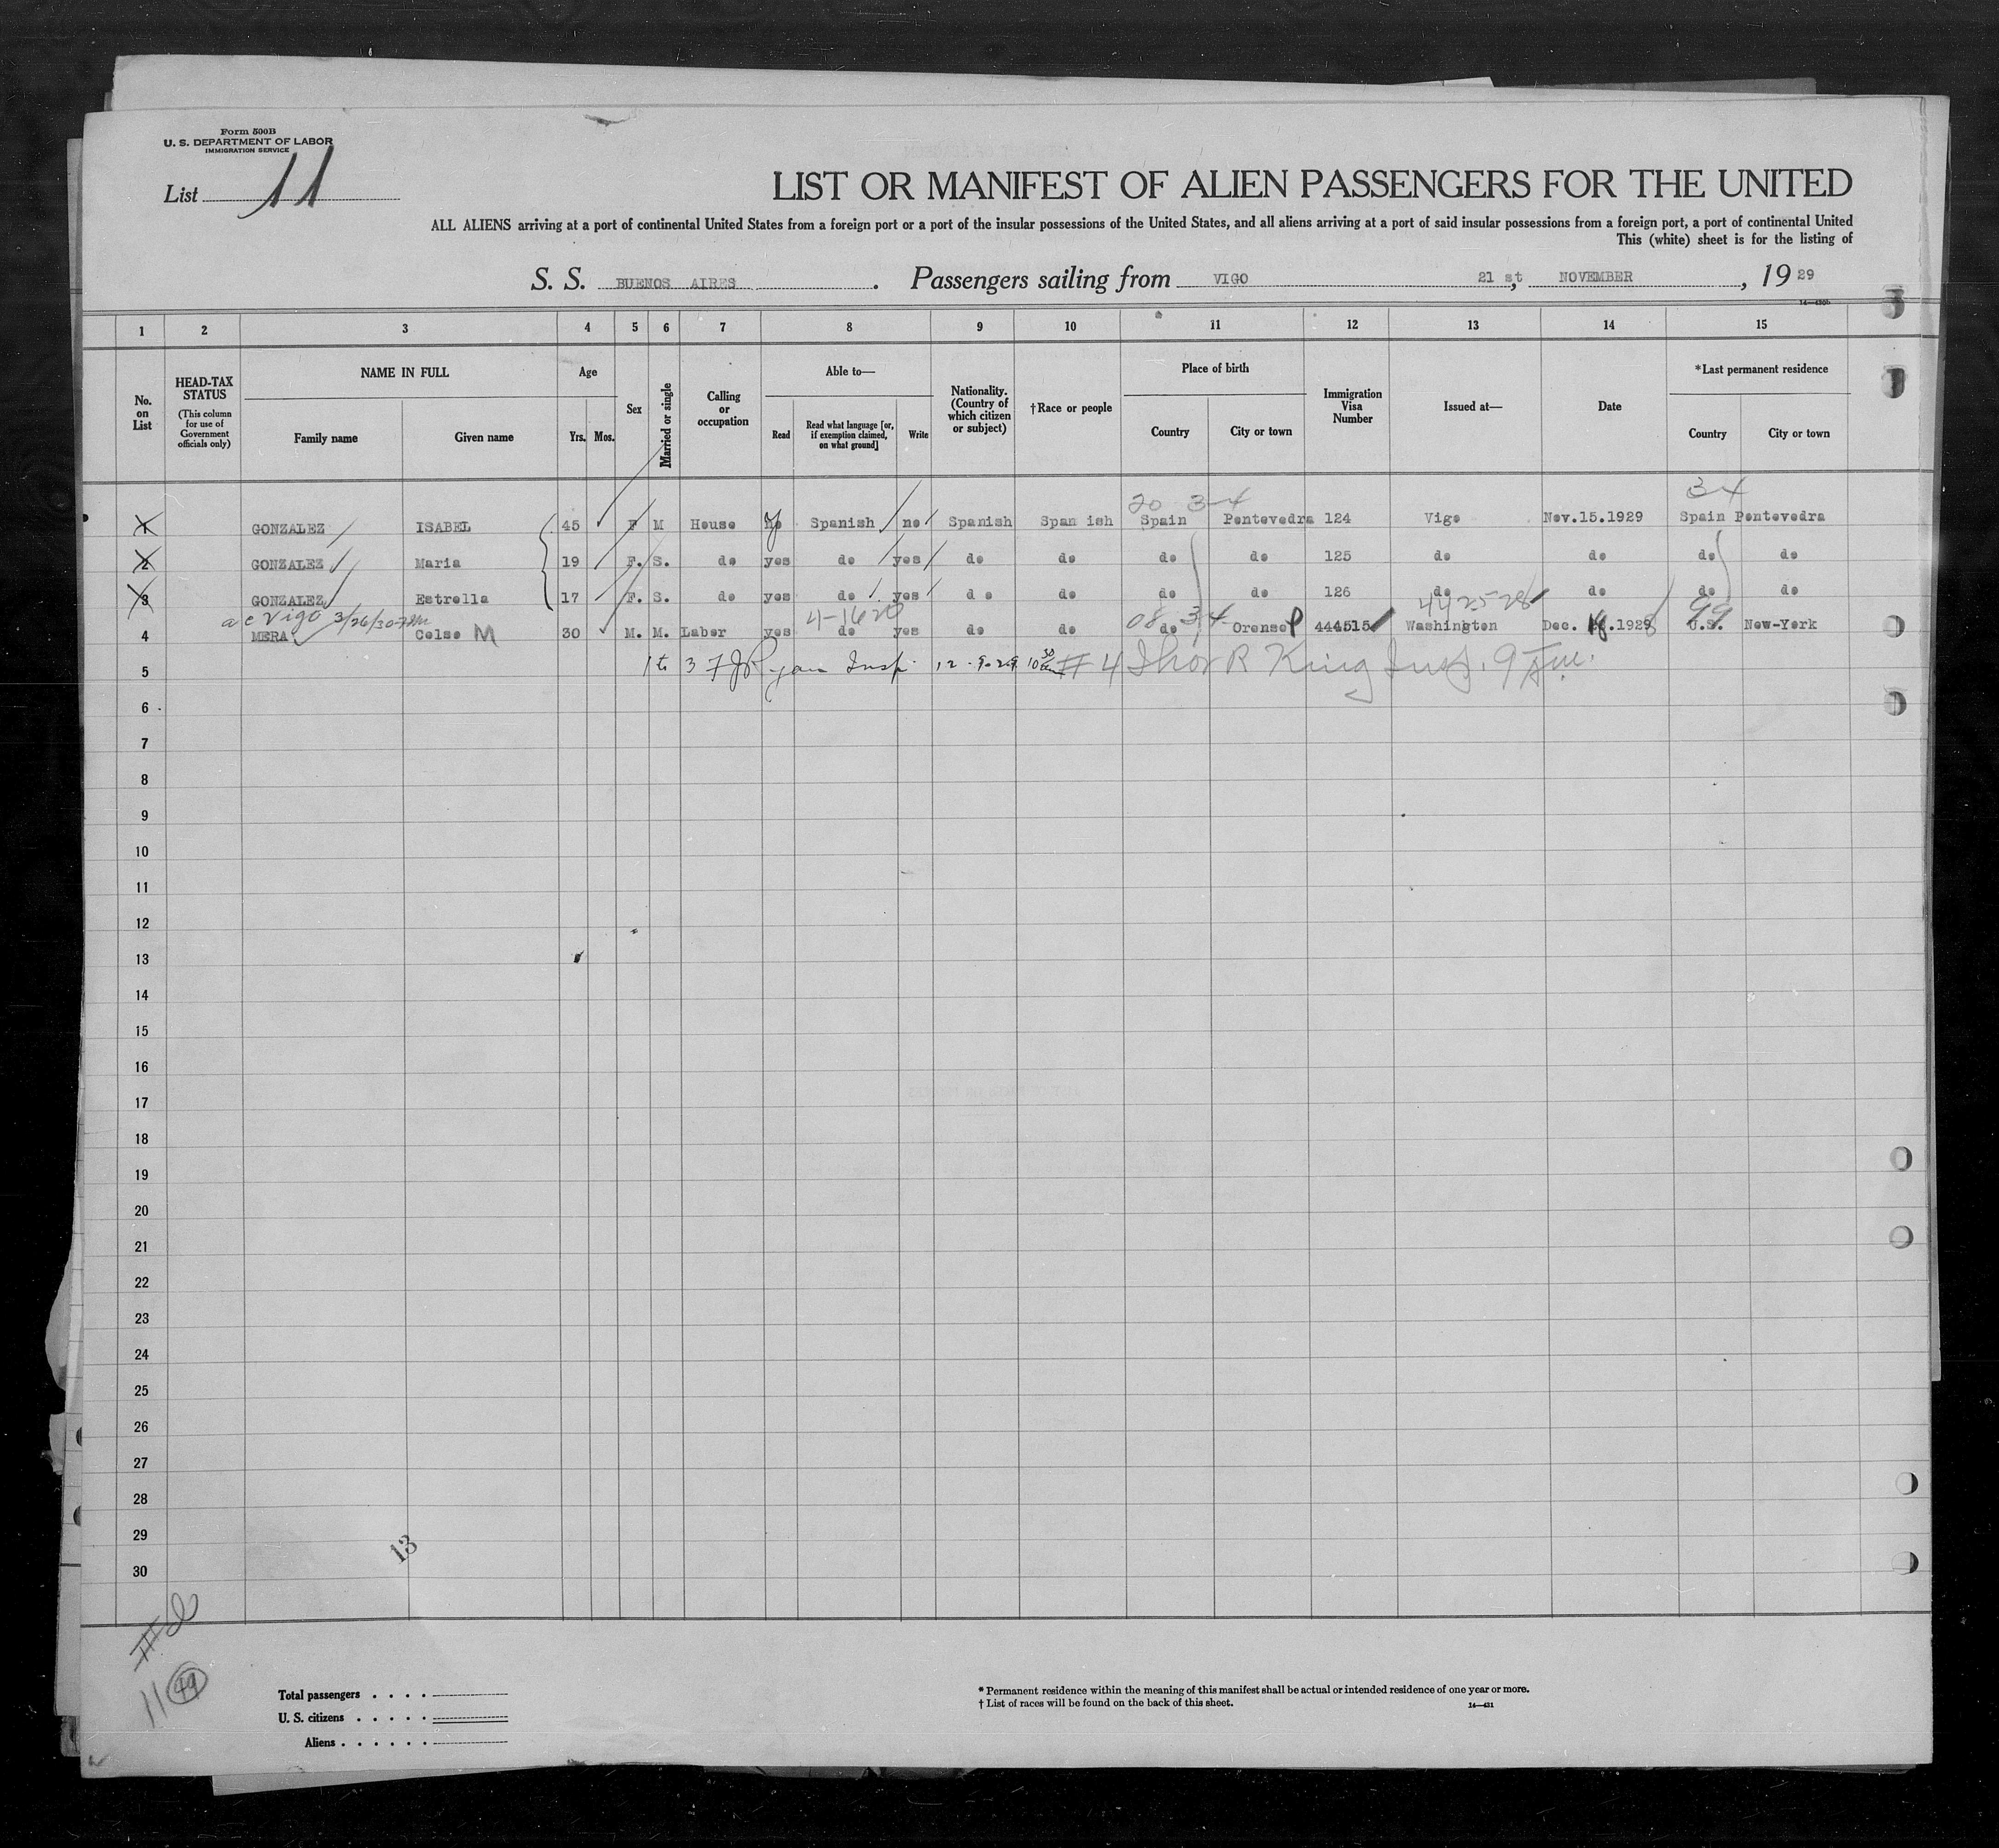 Form 500B
U. S. DEPARTMENT OF LABOR
IMMIGRATION SERVICE
List 11
LIST OR MANIFEST OF ALIEN PASSENGERS FOR THE UNITED
ALL ALIENS arriving at a port of continental United States from a foreign port or a port of the insular possessions of the United States, and all aliens arriving at a port of said insular possessions from a foreign port, a port of continental United
This (white) sheet is for the listing of
S. S. BUENOS AIRES . Passengers sailing from VIGO 21 st, NOVEMBER , 19 29
14—430b
1 2 3 4 5 6 7 8 9 10 11 12 13 14 15
No. on List
HEAD-TAX STATUS (This column for use of Government officials only)
NAME IN FULL
Family name Given name
Age
Yrs. Mos.
Sex
Married or single
Calling or occupation
Able to—
Read Read what language [or, if exemption claimed, on what ground] Write
Nationality. (Country of which citizen or subject)
†Race or people
Place of birth
Country City or town
Immigration Visa Number
Issued at—
Date
*Last permanent residence
Country City or town
20 34 34
1 GONZALEZ ISABEL 45 F M House no Spanish no Spanish Span ish Spain Pontevedra 124 Vigo Nov.15.1929 Spain Pontevedra
2 GONZALEZ Maria 19 F. S. do yes do yes do do do do 125 do do do do
3 GONZALEZ Estrella 17 F. S. do yes do yes do do do do 126 do do do do
Vigo 3/26/30 08 34 99
4 MERA Celso M 30 M. M. Labor yes do yes do do do Orense 444515 Washington Dec. 18.1928 U.S. New-York
5 1 to 3 F J Ryan Insp. 12-9-29 10 30 am # 4 Thos R King Insp. 9
6
7
8
9
10
11
12
13
14
15
16
17
18
19
20
21
22
23
24
25
26
27
28
29
30
13
11 49
Total passengers . . . .
U. S. citizens . . . . .
Aliens . . . . . .
* Permanent residence within the meaning of this manifest shall be actual or intended residence of one year or more.
† List of races will be found on the back of this sheet.
14—431